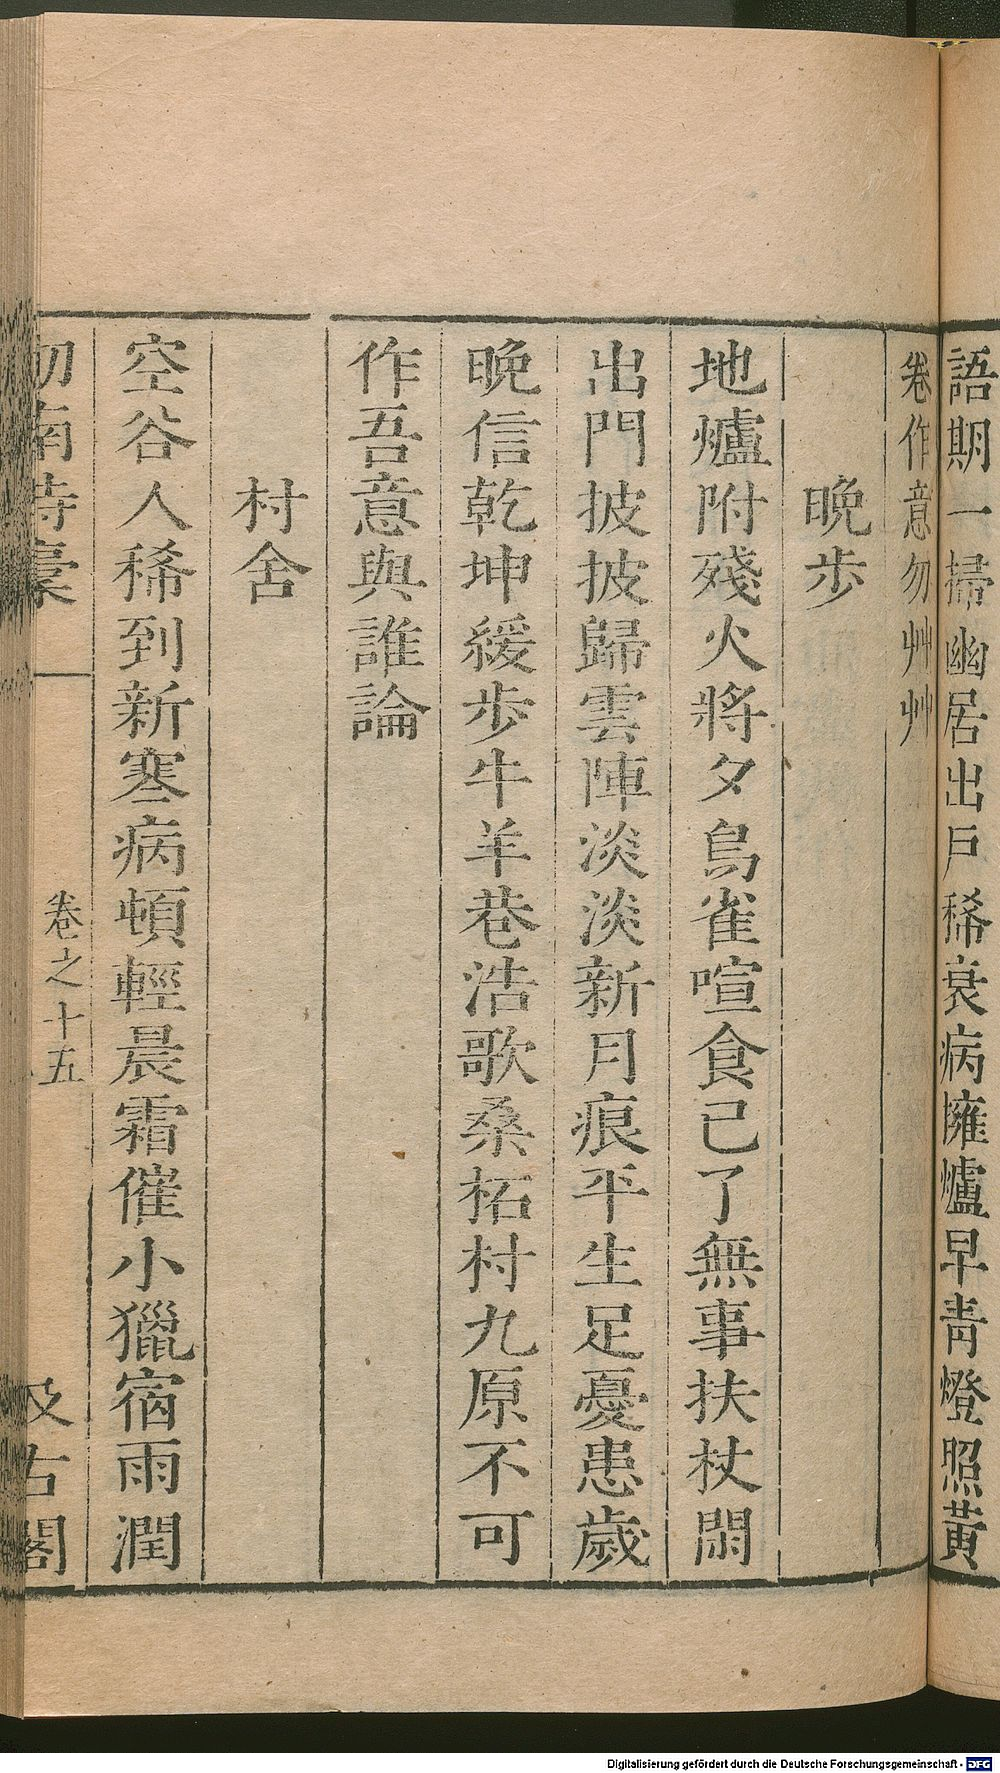 語期一掃幽居出戶稀衰病擁爐早靑燈照黃
卷作意勿艸艸
晩步
地爐附殘火將夕鳥雀喧食已了無事扶杖閑
出門披披歸雲陣淡淡新月痕平生足憂患歲
晩信乾坤緩步牛羊巷浩歌桑拓村九原不可
作吾意與誰論
村舍
空谷人稀到新寒病頓輕晨霜催小獵宿雨潤
劒南詩稾
卷之十五
汲古閣
Digitalisierung gefördert durch die Deutsche Forschungsgemeinschaft - DFG